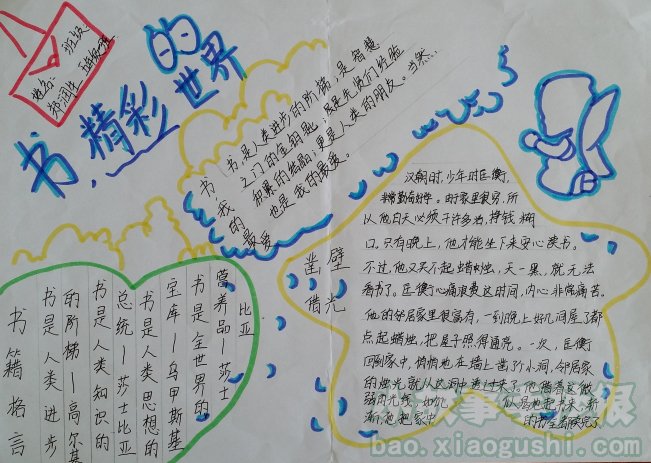 班级
姓名:
书,精彩的世界
书,我的最爱
书,是人类进步的阶梯,是智慧
之门的金钥匙;既是先贤们经验
积累的结晶;更是人类的朋友。当然…
也是我的最爱。
书籍格言
书是人类进步
的阶梯—高尔基
书是人类知识的
总统—莎士比亚
书是人类思想的
宝库—乌申斯基
书是全世界的
营养品—莎士
比亚
凿壁
借光
汉朝时,少年时匡衡,
非常勤奋好学。由于家里很穷,所
以他白天必须干许多活,挣钱糊
口。只有晚上,他才能坐下来安心读书。
不过,他又买不起蜡烛,天一黑,就无法
看书了。匡衡心痛浪费这时间,内心非常痛苦。
他的邻居家里很富有,一到晚上好几间屋子都
点起蜡烛,把屋子照得通亮。一次,匡衡
回到家中,悄悄地在墙上凿了个小洞,邻居家
的烛光就从这洞中透过来了他借着这微
弱的光线,如饥 似渴地起书来,渐
渐地把家中 的书全都读完了
bao.xiaogushi.com